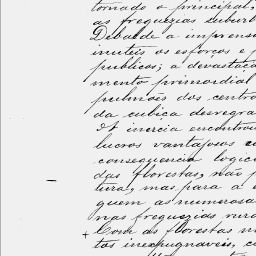 tornado o principal,
as freguezias suburb
Debalde a imprensa
inuteis os esforços e
publicos; a devastaçã
mento primordial
pulmões dos centro
da cubiça desregra
A inercia encontrou
lucros vantajosos
consequencia logic
das florestas, não p
tura, mas para a
quem as numerosas
nas freguezias rura
+ Com as florestas
tos inexpugnaveis, c